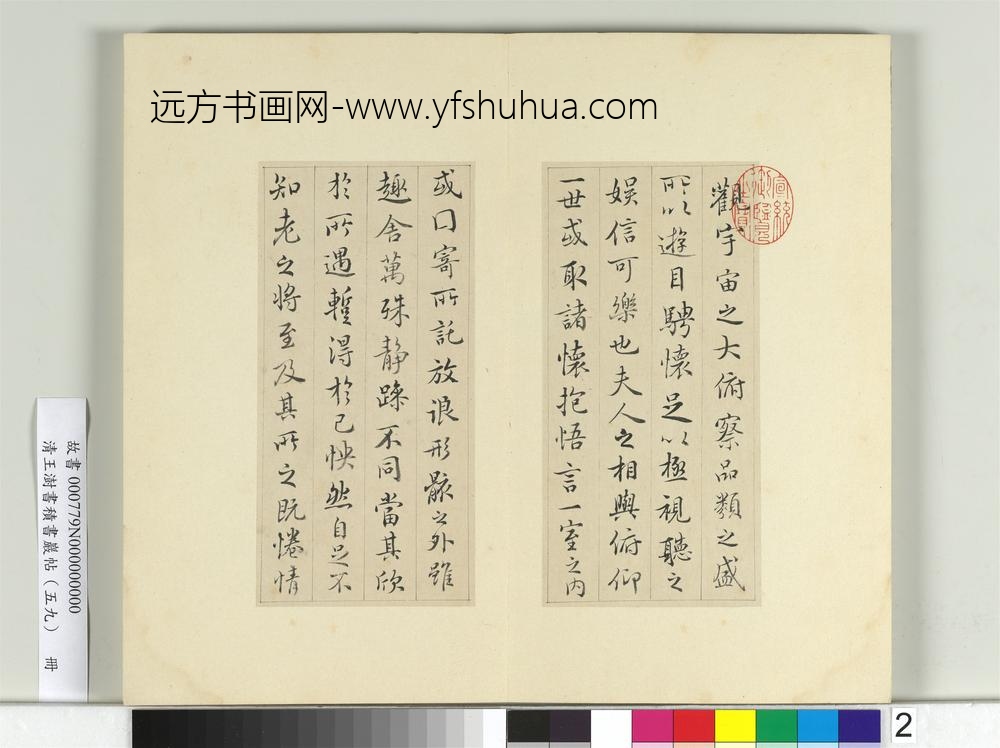 远方书画网-www.yfshuhua.com
觀宇宙之大俯察品類之盛
所以遊目騁懷足以極視聽之
娛信可樂也夫人之相與俯仰
一世或取諸懷抱悟言一室之內
或囙寄所託放浪形骸之外雖
趣舍萬殊静躁不同當其欣
於所遇蹔得於己怏然自足不
知老之將至及其所之既惓情
宣統御覽之寶
故書 000779N000000000
清王澍書積書巖帖（五九） 冊
2